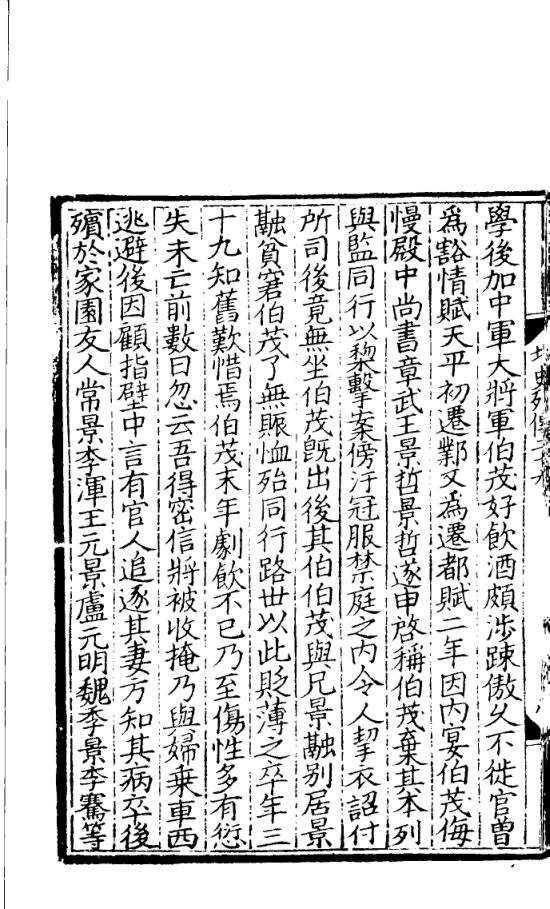 學後加中軍大將軍伯茂好飲酒頗涉踈傲乆不徙官曽
爲豁情賦天平初遷鄴又爲遷都賦二年因内宴伯茂侮
慢殿中尚書章武王景哲景哲遂申啓稱伯茂棄其本列
與監同行以棃擊案傍汙冠服禁庭之内令人挈衣詔付
所司後竟無坐伯茂旣出後其伯伯茂與兄景融别居景
融貧窘伯茂了無賑恤殆同行路世以此貶薄之卒年三
十九知舊歎惜焉伯茂末年劇飲不已乃至傷性多有愆
失未亡前數日忽云吾得密信將被收掩乃與婦乗車西
逃避後因顧指壁中言有官人追逐其妻方知其病卒後
殯於家園友人常景李渾王元景盧元明魏季景李騫等
北史列傳二十六